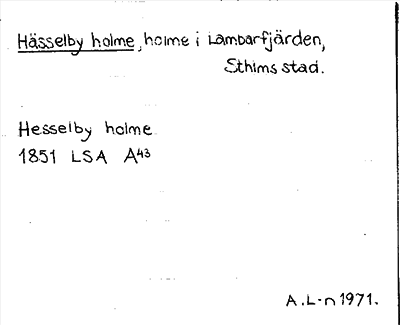 Hässelby holme, holme i Lambarfjärden,
Sthlms stad.
Hesselby holme
1851 LSA A43
A.L-n 1971.